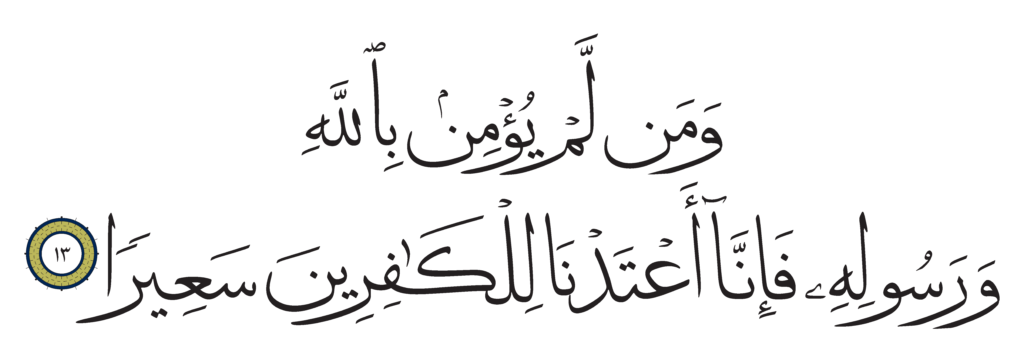 وَمَن لَّمْ يُؤْمِنۢ بِٱللَّهِ
وَرَسُولِهِۦ فَإِنَّآ أَعْتَدْنَا لِلْكَـٰفِرِينَ سَعِيرًا ١٣